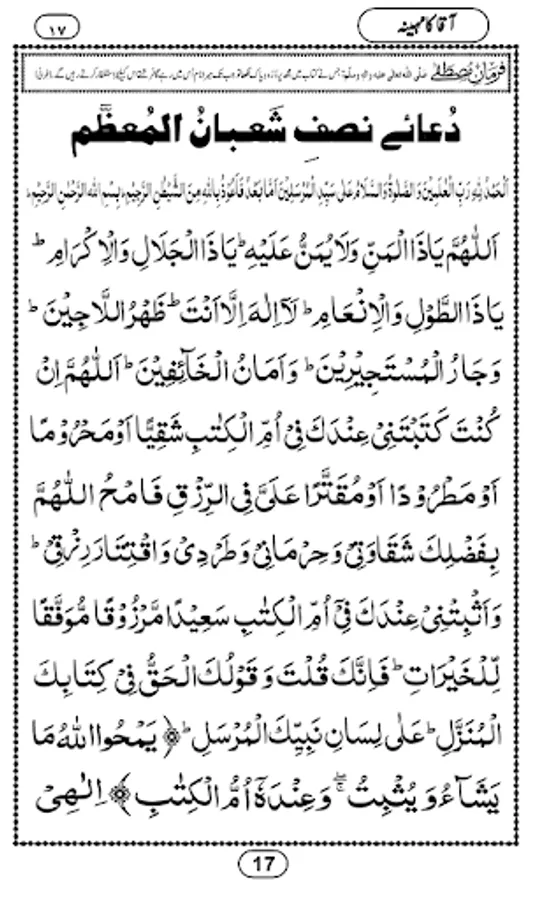 آقا کا مہینہ
۱۷
فرمانِ مصطفٰے صلی اللہ تعالٰی علیہ والہ وسلم: جس نے کتاب میں مجھ پر درود پاک لکھا تو جب تک میرا نام اس میں رہے گا فرشتے اس کیلئے استغفار کرتے رہیں گے۔
دُعائے نصفِ شَعبانُ المُعظَّم
اَلْحَمْدُ لِلّٰہِ رَبِّ الْعٰلَمِیْنَ وَالصَّلٰوۃُ وَالسَّلَامُ عَلٰی سَیِّدِ الْمُرْسَلِیْنَ اَمَّا بَعْدُ فَاَعُوْذُ بِاللّٰہِ مِنَ الشَّیْطٰنِ الرَّجِیْمِ ؕ بِسْمِ اللّٰہِ الرَّحْمٰنِ الرَّحِیْمِ ؕ
اَللّٰھُمَّ یَاذَا الْمَنِّ وَلَا یُمَنُّ عَلَیْہِ ؕ یَاذَا الْجَلَالِ وَالْاِکْرَامِ ؕ
یَاذَا الطَّوْلِ وَالْاِنْعَامِ ؕ لَآ اِلٰہَ اِلَّا اَنْتَ ؕ ظَھْرُ اللَّاجِیْنَ ؕ
وَجَارُ الْمُسْتَجِیْرِیْنَ ؕ وَاَمَانُ الْخَآئِفِیْنَ ؕ اَللّٰھُمَّ اِنْ
کُنْتَ کَتَبْتَنِیْ عِنْدَکَ فِیْٓ اُمِّ الْکِتٰبِ شَقِیًّا اَوْ مَحْرُوْمًا
اَوْ مَطْرُوْدًا اَوْ مُقَتَّرًا عَلَیَّ فِی الرِّزْقِ فَامْحُ اللّٰھُمَّ
بِفَضْلِکَ شَقَاوَتِیْ وَحِرْمَانِیْ وَطَرْدِیْ وَاقْتِتَارَ رِزْقِیْ ؕ
وَاَثْبِتْنِیْ عِنْدَکَ فِیْٓ اُمِّ الْکِتٰبِ سَعِیْدًا مَّرْزُوْقًا مُّوَفَّقًا
لِّلْخَیْرَاتِ ؕ فَاِنَّکَ قُلْتَ وَقَوْلُکَ الْحَقُّ فِیْ کِتَابِکَ
الْمُنَزَّلِ ؕ عَلٰی لِسَانِ نَبِیِّکَ الْمُرْسَلِ ؕ ﴿ یَمْحُوا اللّٰہُ مَا
یَشَآءُ وَیُثْبِتُ ۚۖ وَعِنْدَہٗٓ اُمُّ الْکِتٰبِ ﴾ اِلٰھِیْ
17